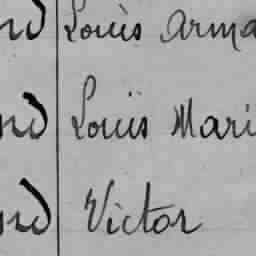 nd Louis Arma
nd Louis Mari
nd Victor